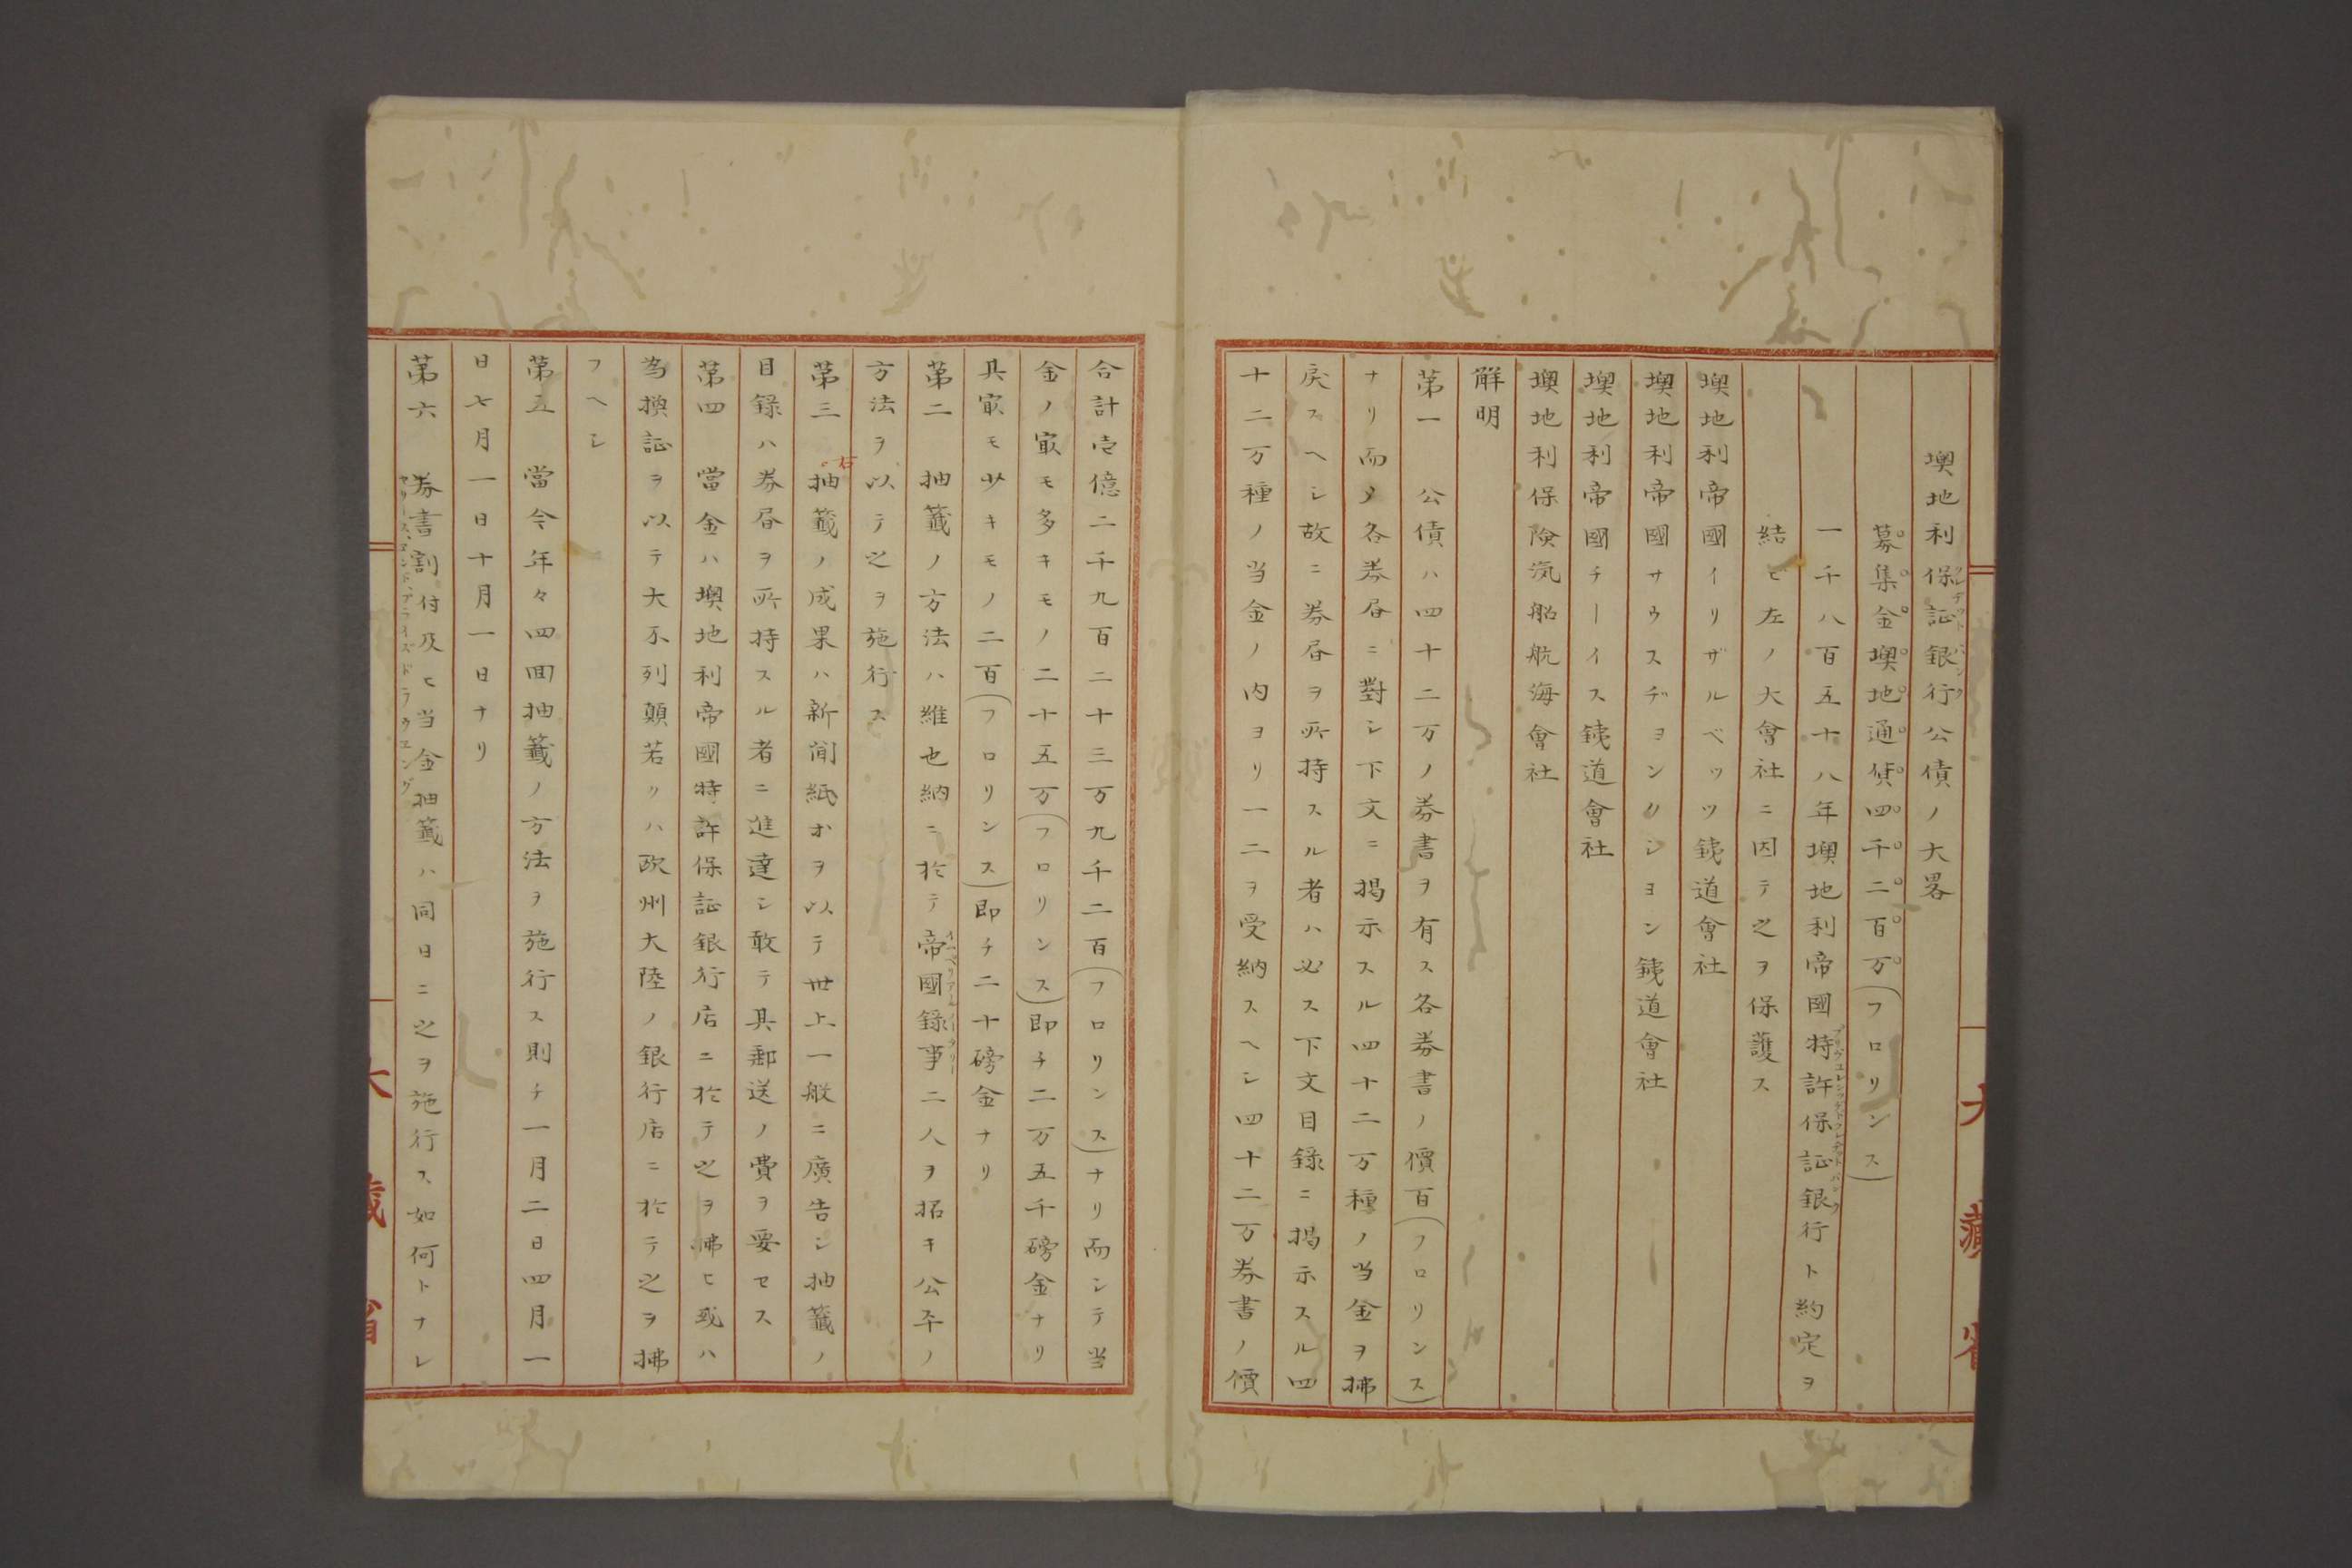 墺地利保証銀行公債ノ大畧
クレデットバンク
募集金墺地通貨四千二百万(フロリンス)
一千八百五十八年墺地利帝國特許保証銀行ト約定ヲ
結ヒ左ノ大會社ニ因テ之ヲ保護ス
墺地利帝國イリザルベッツ銕道會社
墺地利帝國サウスヂヨンクシヨン銕道會社
墺地利帝國チーイス銕道會社
墺地利保険汽船航海會社
解明
第一　公債ハ四十二万ノ券書ヲ有ス各券書ノ價百(フロリンス)
ナリ而メ各券昬ニ對シ下文ニ揭示スル四十二万種ノ当金ヲ拂
戻スヘシ故ニ券昬ヲ所持スル者ハ必ス下文目録ニ揭示スル四
十二万種ノ当金ノ内ヨリ一二ヲ受納スヘシ四十二万券書ノ價
大藏省
合計壱億二千九百二十三万九千二百(フロリンス)ナリ而シテ当
金ノ㝡モ多キモノ二十五万(フロリンス)即チ二万五千磅金ナリ
其㝡モ少キモノ二百(フロリンス)即チ二十磅金ナリ
第二　抽籤ノ方法ハ維也納ニ於テ帝國錄事二人ヲ招キ公平ノ
方法ヲ以テ之ヲ施行ス
第三　右抽籤ノ成果ハ新聞紙オヲ以テ世上一般ニ廣告シ抽籤ノ
目録ハ券昬ヲ所持スル者ニ進達シ敢テ其郵送ノ費ヲ要セス
第四　當金ハ墺地利帝國特許保証銀行店ニ於テ之ヲ拂ヒ或ハ
為換証ヲ以テ大不列顛若クハ欧州大陸ノ銀行店ニ於テ之ヲ拂
フヘシ
第五　當今年々四囬抽籤ノ方法ヲ施行ス則チ一月二日四月一
日七月一日十月一日ナリ
第六　券書割付及ヒ当金抽籤ハ同日ニ之ヲ施行ス如何トナレ
大藏省